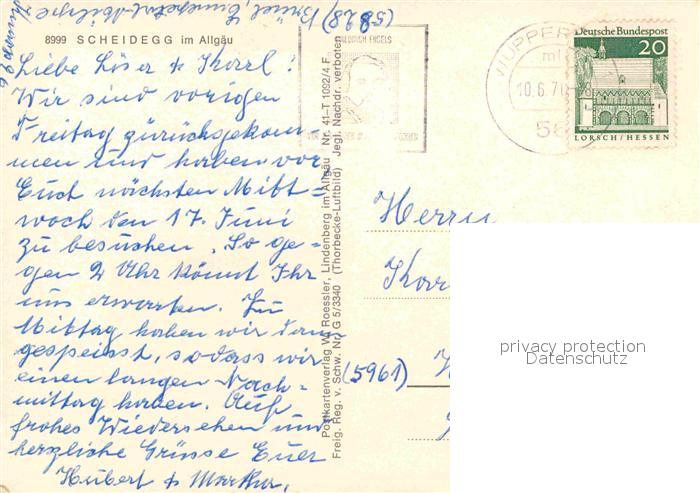 (5828)
8999 SCHEIDEGG im Allgäu
Liebe Löser & Karl!
Wir sind vorigen
Freitag zurückgekom-
men und haben vor
Euch nächsten Mitt=
woch den 17. Juni
zu besuchen. So ge-
gen 2 Uhr könnt Ihr
uns erwarten. Zu
Mittag haben wir dann
gespeisst, sodass wir
einen langen Nach-
mittag haben. Auf
frohes Wiedersehen und
herzliche Grüsse Euer
Hubert & Martha.
Postkartenverlag W. Roessler, Lindenberg im Allgäu Nr. 41-T 1092/4 F.
Freig. Reg. v. Schw. Nr. G 5/3340 (Thorbecke-Luftbild) Jegl. Nachdr. verboten
FRIEDRICH ENGELS
WUPPER
10.6.70
56
Deutsche Bundespost
20
LORSCH/HESSEN
Herrn
(5961)
privacy protection
Datenschutz